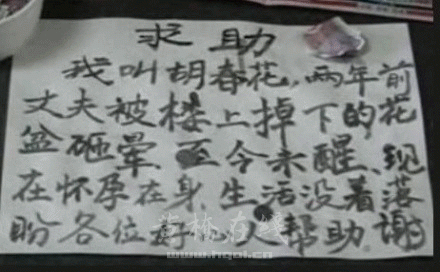 求助
我叫胡春花,两年前
丈夫被楼上掉下的花
盆砸晕至今未醒、现
在怀孕在身、生活没着落
盼各位好心人帮助.谢